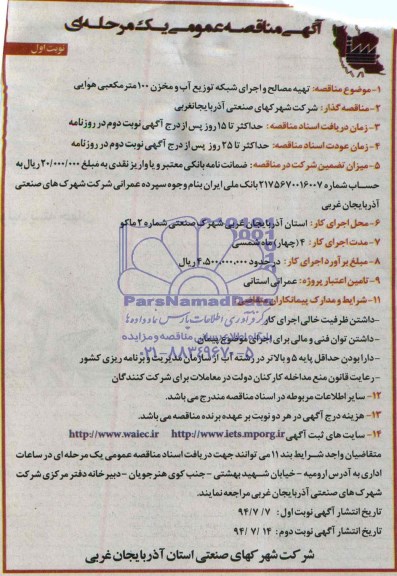 آگهی مناقصه عمومی یک مرحله‌ای
نوبت اول
۱-موضوع مناقصه: تهیه مصالح و اجرای شبکه توزیع آب و مخزن ۱۰۰ مترمکعبی هوایی
۲-مناقصه گذار: شرکت شهرکهای صنعتی آذربایجانغربی
۳- زمان دریافت اسناد مناقصه: حداکثر تا ۱۵ روز پس از درج آگهی نوبت دوم در روزنامه
۴- زمان عودت اسناد مناقصه: حداکثر تا ۲۵ روز پس از درج آگهی نوبت دوم در روزنامه
۵- میزان تضمین شرکت در مناقصه: ضمانت نامه بانکی معتبر و یا واریز نقدی به مبلغ ۲۰۰/۰۰۰/۰۰۰ ریال به
حساب شماره ۲۱۷۵۶۷۰۰۱۶۰۰۷ بانک ملی ایران بنام وجوه سپرده عمرانی شرکت شهرک های صنعتی
آذربایجان غربی
۶- محل اجرای کار: استان آذربایجان غربی شهرک صنعتی شماره ۲ ماکو
۷- مدت اجرای کار: ۴ (چهار) ماه شمسی
۸- مبلغ برآورد اجرای کار: در حدود ۴،۵۰۰،۰۰۰،۰۰۰ ریال
۹-تامین اعتبار پروژه: عمرانی استانی
ParsNamadData
۱۱- شرایط و مدارک پیمانکاران متقاضی:
-داشتن ظرفیت خالی اجرای کار
-داشتن توان فنی و مالی برای اجرای موضوع پیمان
پایگاه اطلاع رسانی مناقصه و مزایده
۰۲۱-۸۸۳۴۹۶۷۰-۵
-دارا بودن حداقل پایه ۵ و بالاتر در رشته آب از سازمان مدیریت و برنامه ریزی کشور
-رعایت قانون منع مداخله کارکنان دولت در معاملات برای شرکت کنندگان
۱۲- سایر اطلاعات مربوطه در اسناد مناقصه مندرج می باشد.
۱۳- هزینه درج آگهی در هر دو نوبت بر عهده برنده مناقصه می باشد.
۱۴- سایت های ثبت آگهی http://www.iets.mporg.ir http://www.waiec.ir
متقاضیان واجد شرایط بند ۱۱ می توانند جهت دریافت اسناد مناقصه عمومی یک مرحله ای در ساعات
اداری به آدرس ارومیه - خیابان شهید بهشتی - جنب کوی هنرجویان - دبیرخانه دفتر مرکزی شرکت
شهرک های صنعتی آذربایجان غربی مراجعه نمایند.
تاریخ انتشار آگهی نوبت اول: ۹۴/۷/۷
تاریخ انتشار آگهی نوبت دوم: ۹۴/۷/۱۴
شرکت شهرکهای صنعتی استان آذربایجان غربی